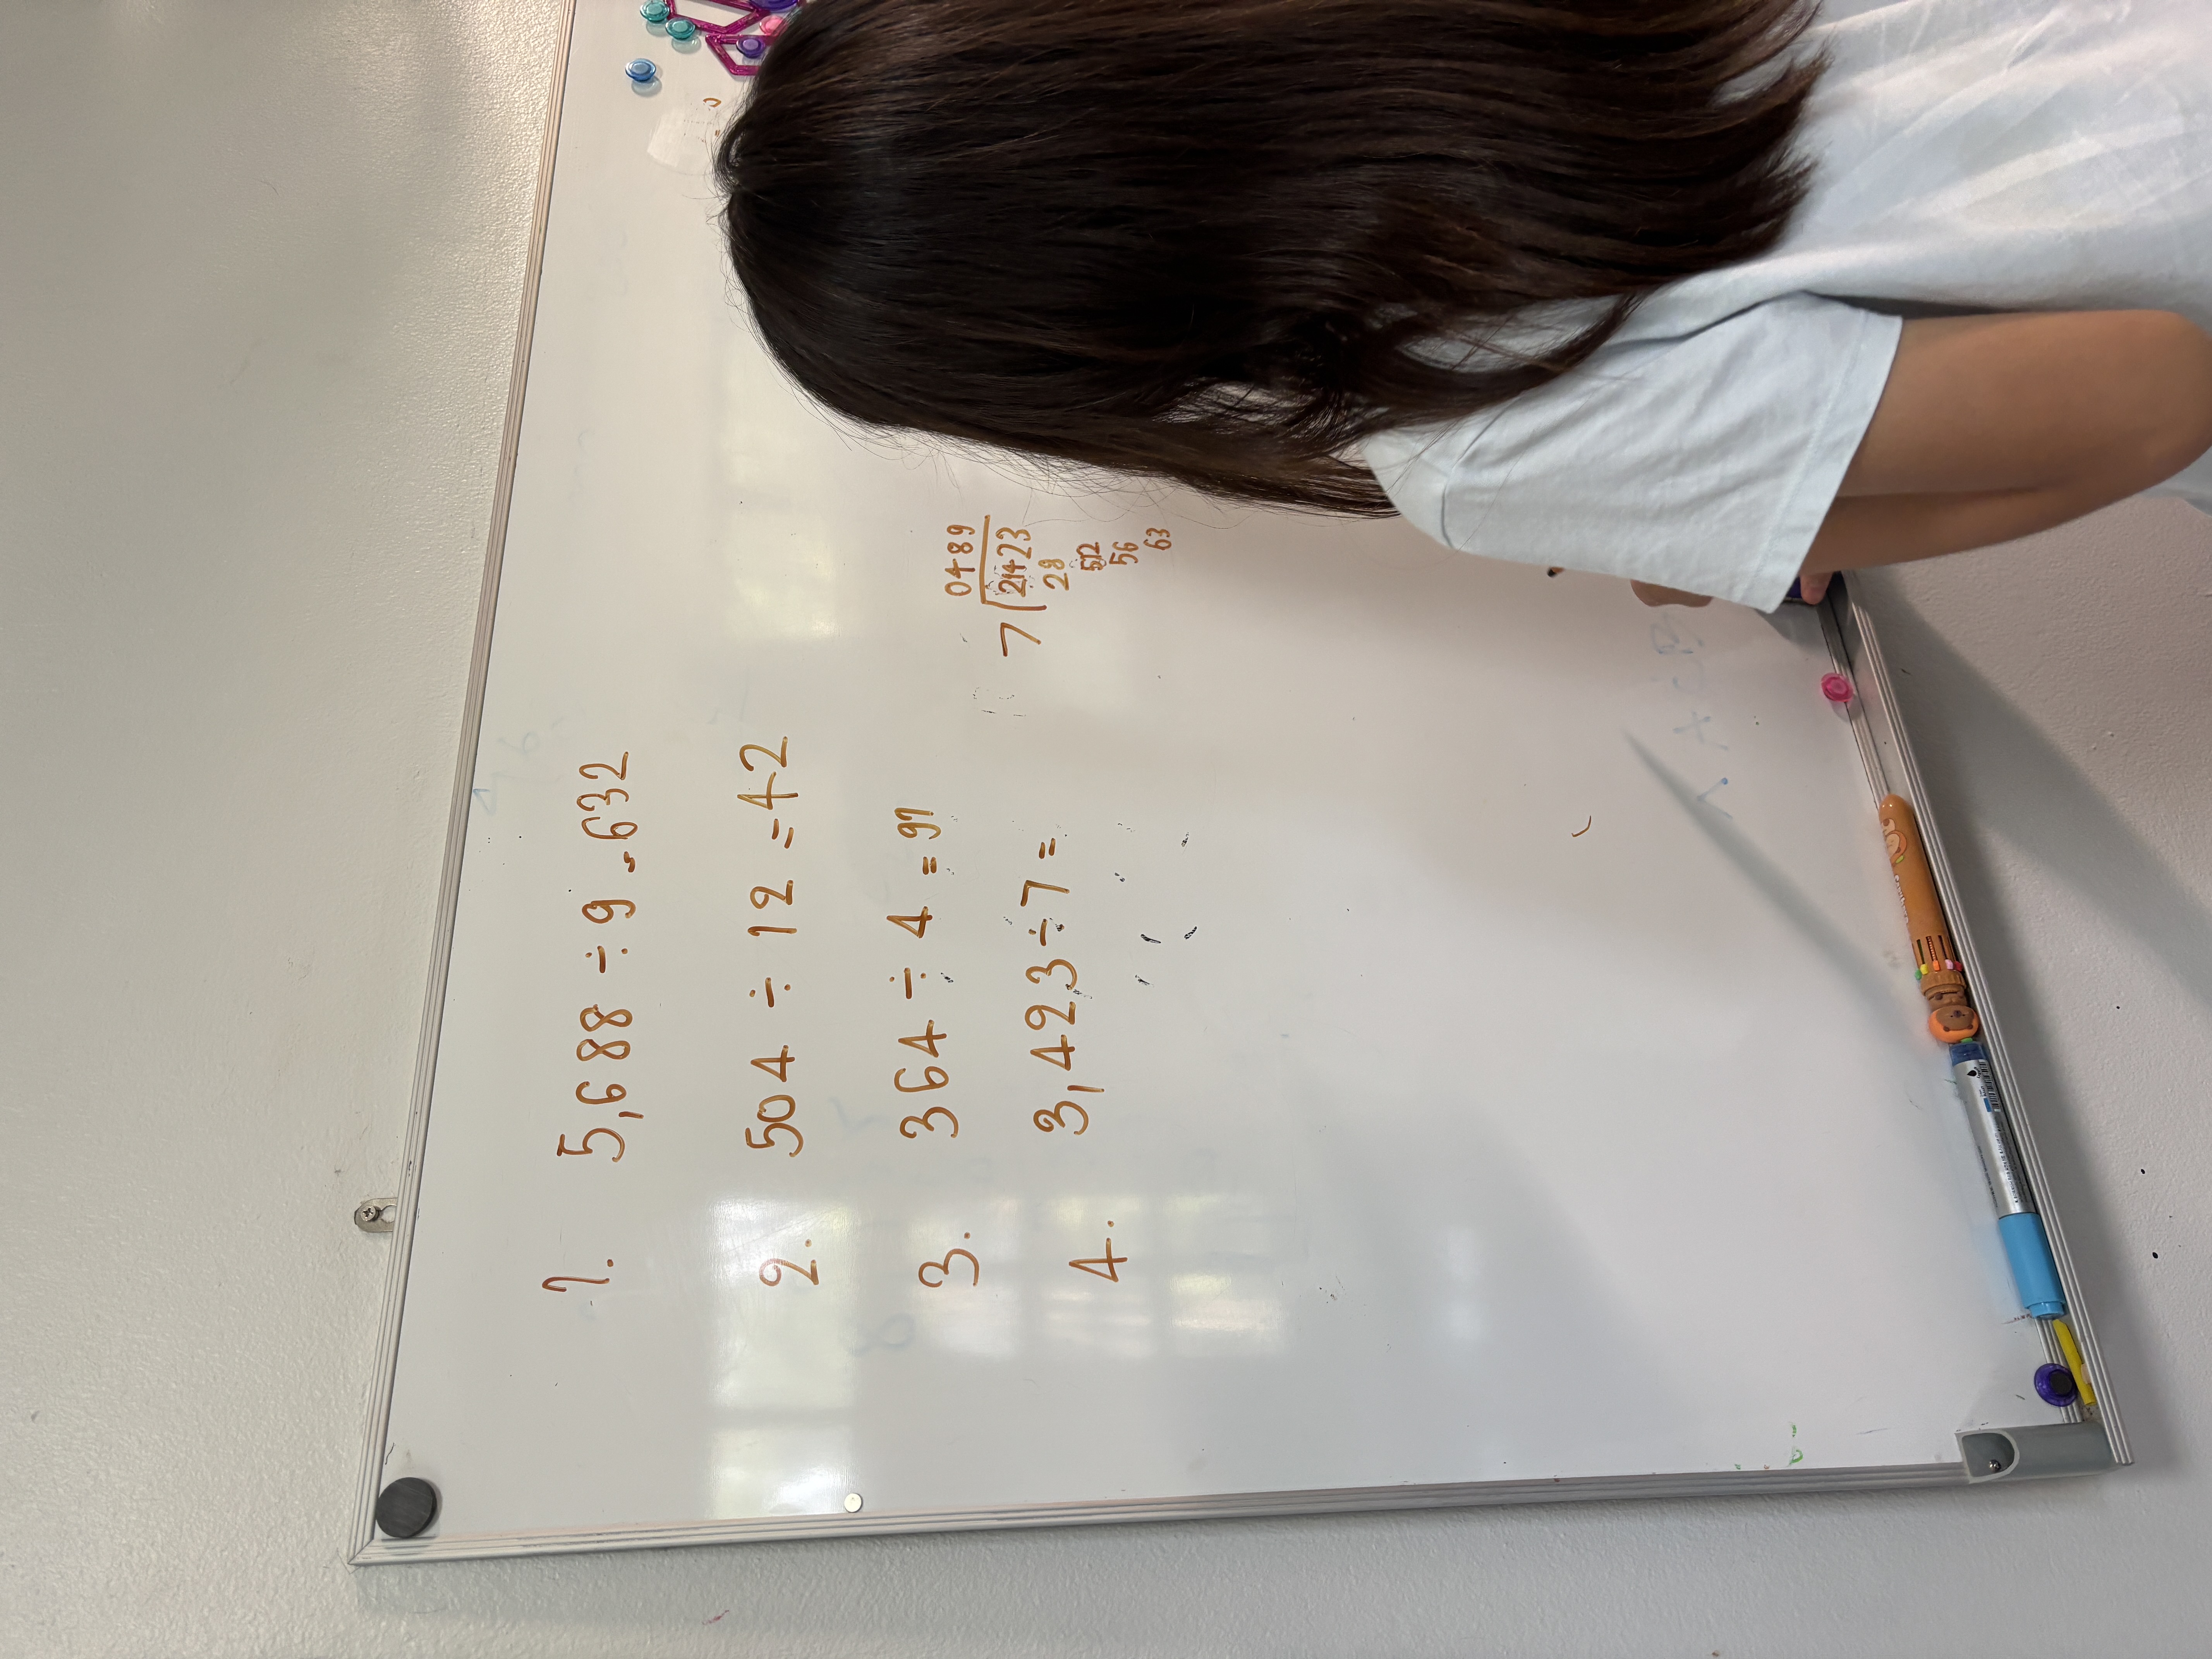 1. 5,688 ÷ 9 = 632
2. 504 ÷ 12 = 42
3. 364 ÷ 4 = 91
4. 3,423 ÷ 7 =
0489
7
3423
28
56
63